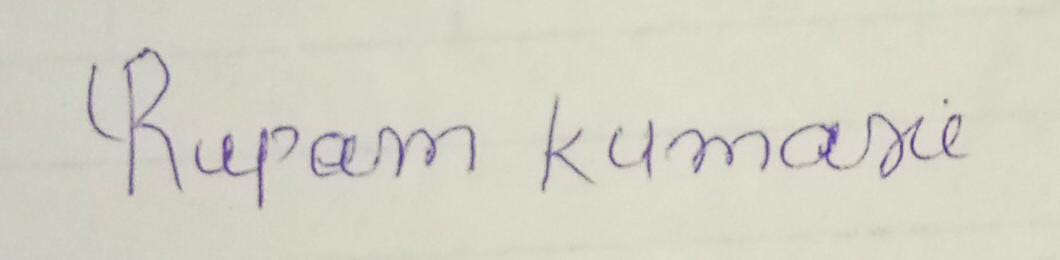 Rupam kumari